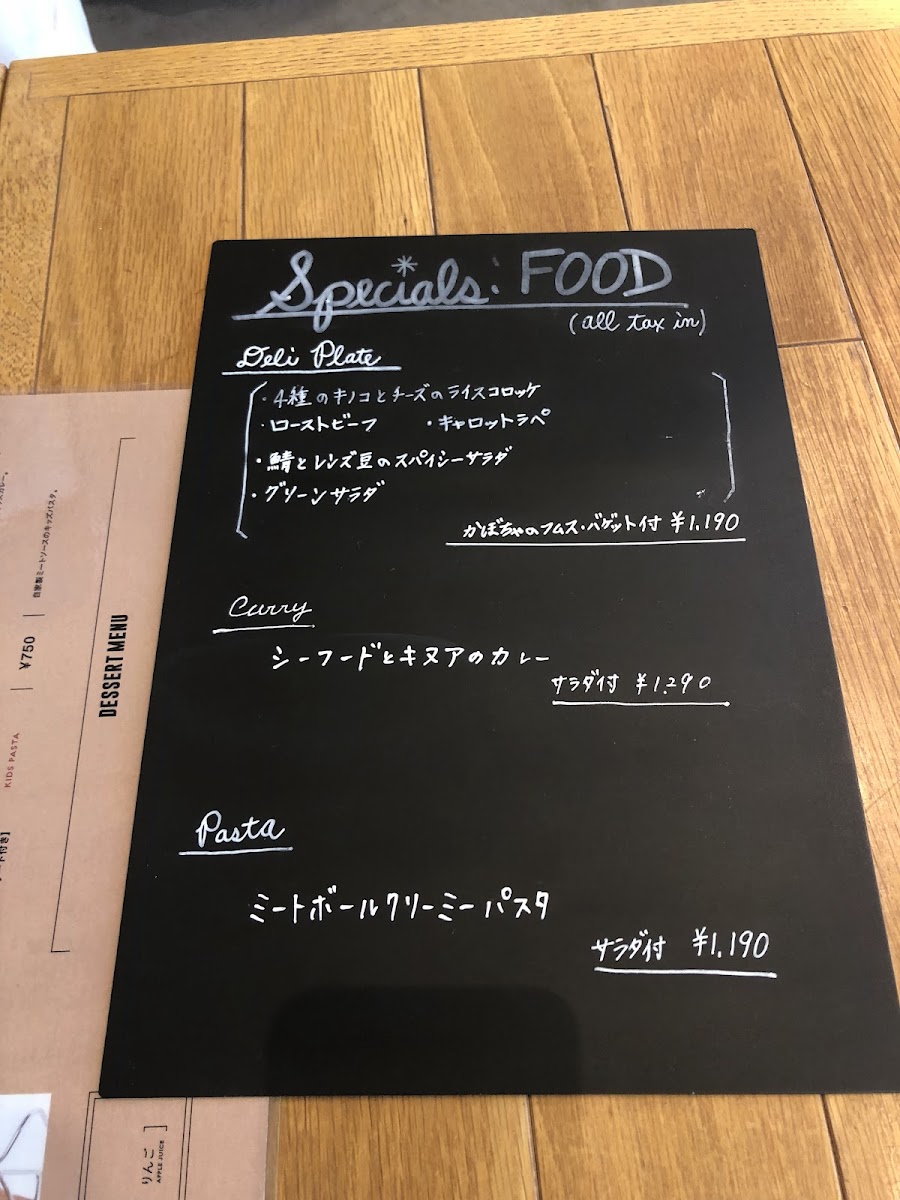 Specials: FOOD
(all tax in)
Deli Plate
・4種のキノコとチーズのライスコロッケ
・ローストビーフ ・キャロットラペ
・鯖とレンズ豆のスパイシーサラダ
・グリーンサラダ
かぼちゃのフムス・バゲット付 ¥1,190
Curry
シーフードとキヌアのカレー
サラダ付 ¥1,290
Pasta
ミートボールクリーミーパスタ
サラダ付 ¥1,190
KIDS PASTA
¥750
自家製ミートソースのキッズパスタ。
DESSERT MENU
りんご
APPLE JUICE